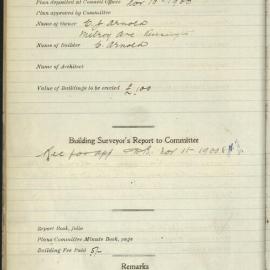 Plan deposited at Council Offices Nov 10 - 1900
Plan approved by Committee
Name of Owner E J Arnold
Milroy Ave Kensington
Name of Builder E. Arnold
Name of Architect
Value of Buildings to be erected £100
Building Surveyor's Report to Committee
Rec for app Nov 15 1900
Report Book, folio
Plans Committee Minute Book, page
Building Fee Paid 5/-
Remarks